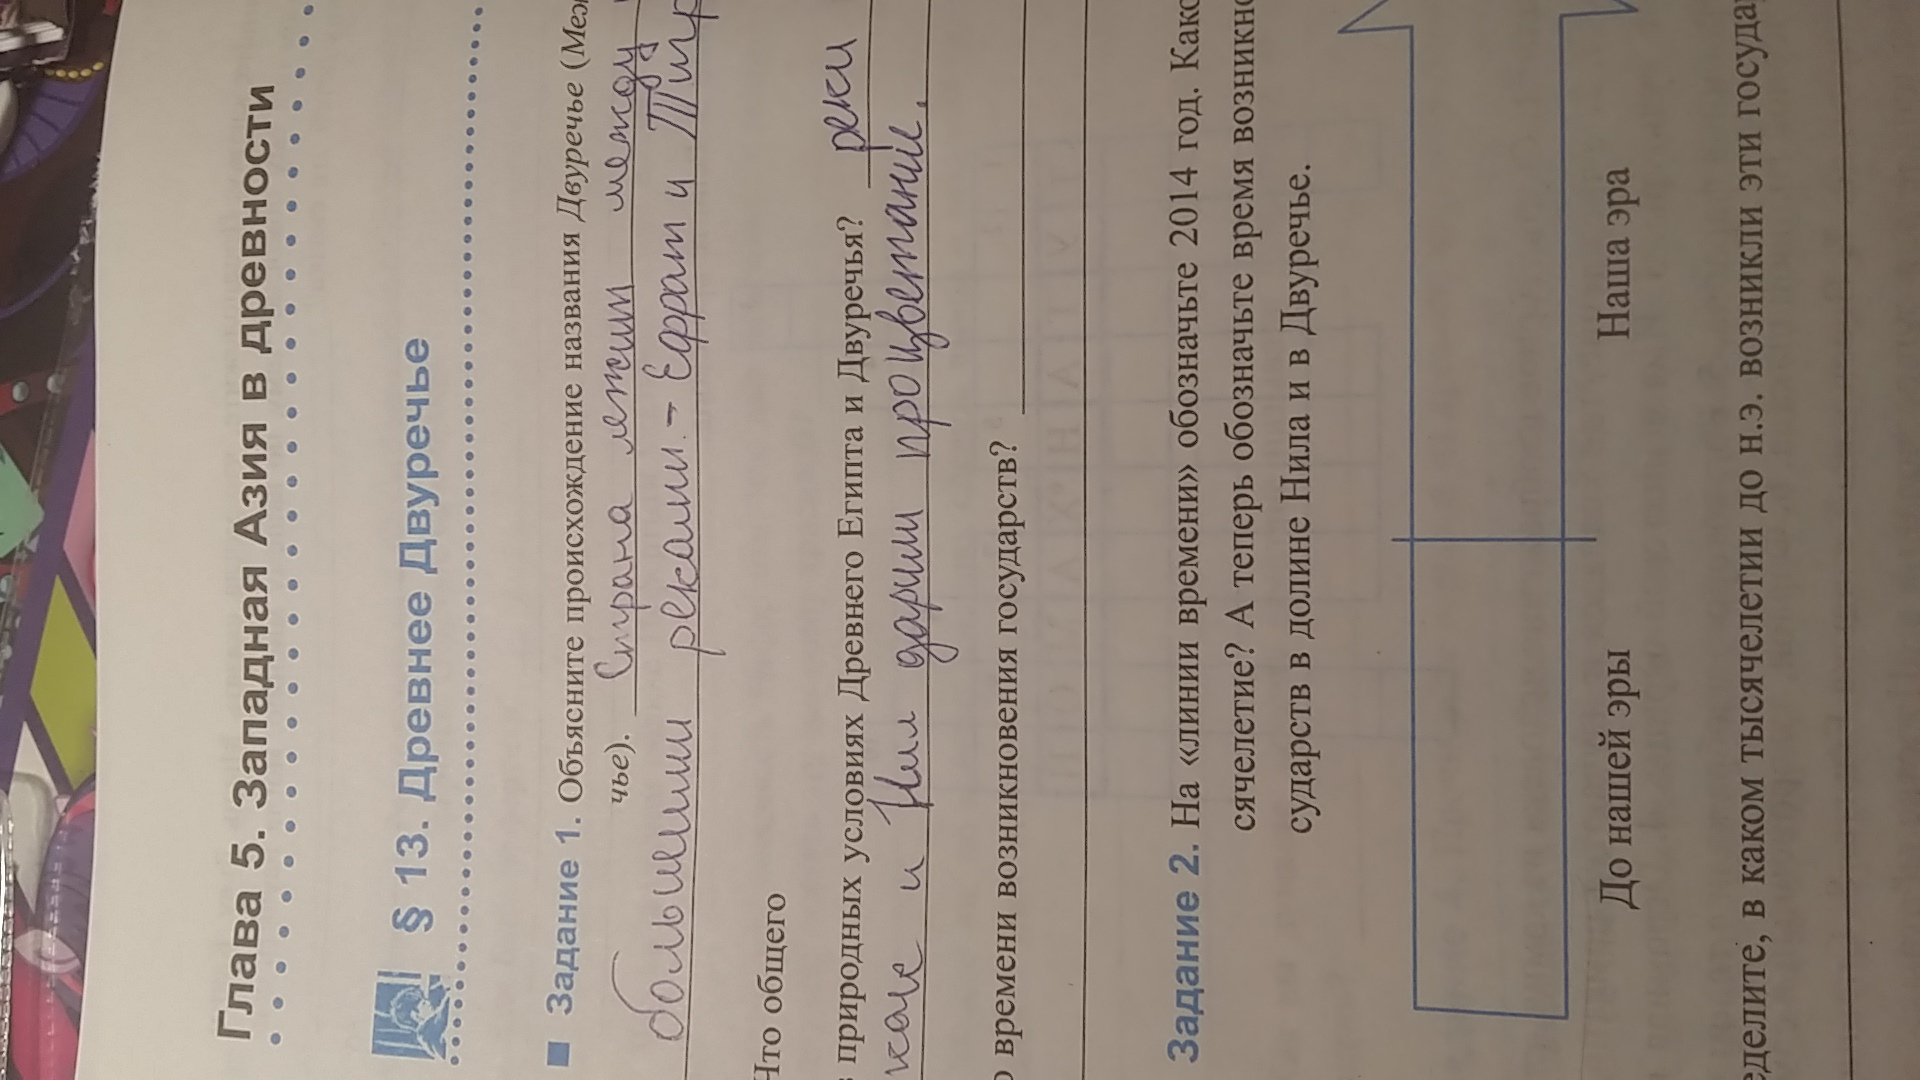 Глава 5. Западная Азия в древности
§ 13. Древнее Двуречье
Задание 1. Объясните происхождение названия Двуречье (Меж
чье). Страна лежит между
большими реками - Ефрат и Тигр
Что общего
в природных условиях Древнего Египта и Двуречья? реки
и Нил дарили процветание.
о времени возникновения государств?
Задание 2. На «линии времени» обозначьте 2014 год. Како
сячелетие? А теперь обозначьте время возникно
сударств в долине Нила и в Двуречье.
До нашей эры Наша эра
еделите, в каком тысячелетии до н.э. возникли эти госуда